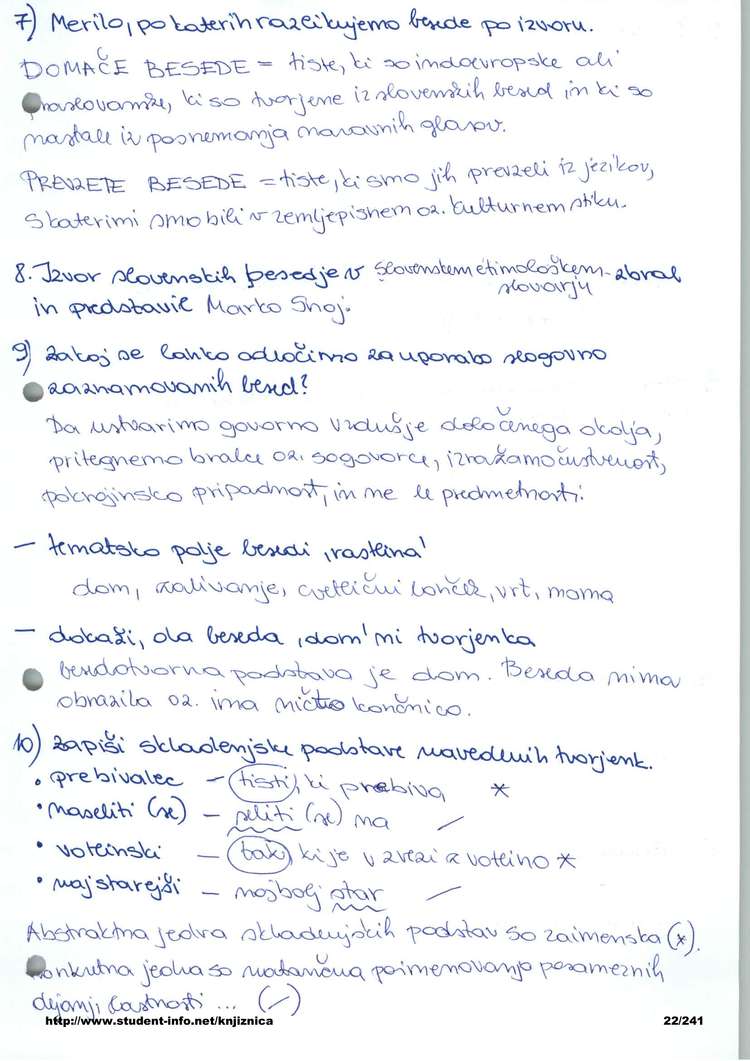 7) Merilo, po katerih razlikujemo besede po izvoru.
DOMAČE BESEDE = tiste, ki so indoevropske ali
praslovanske, ki so tvorjene iz slovenskih besed in ki so
nastale iz posnemanja naravnih glasov.
PREVZETE BESEDE = tiste, ki smo jih prevzeli iz jezikov,
s katerimi smo bili v zemljepisnem oz. kulturnem stiku.
8. Izvor slovenskih besedje v slovenskem etimološkem - zbral
slovarju
in predstavil Marko Snoj.
9) Zakaj se lahko odločimo za uporabo slogovno
zaznamovanih besed?
Da ustvarimo govorno vzdušje določenega okolja,
pritegnemo bralce oz. sogovorce, izražamo čustvenost,
pokrajinsko pripadnost, in ne le predmetnosti.
- tematsko polje besedi 'rastlina'
dom, zalivanje, cvetlični lonček, vrt, mama
- dokaži, da beseda 'dom' ni tvorjenka
besedotvorna podstava je dom. Beseda nima
obrazila oz. ima ničto končnico.
10) Zapiši skladenjske podstave navedenih tvorjenk.
• prebivalec - tisti, ki prebiva *
• naseliti (se) - seliti (se) na /
• votlinski - tak, ki je v zvezi z votlino *
• najstarejši - najbolj star /
Abstraktna jedra skladenjskih podstav so zaimenska (*).
Konkretna jedra so natančna poimenovanja posameznih
dejanj, lastnosti ... (/)
http://www.student-info.net/knjiznica
22/241